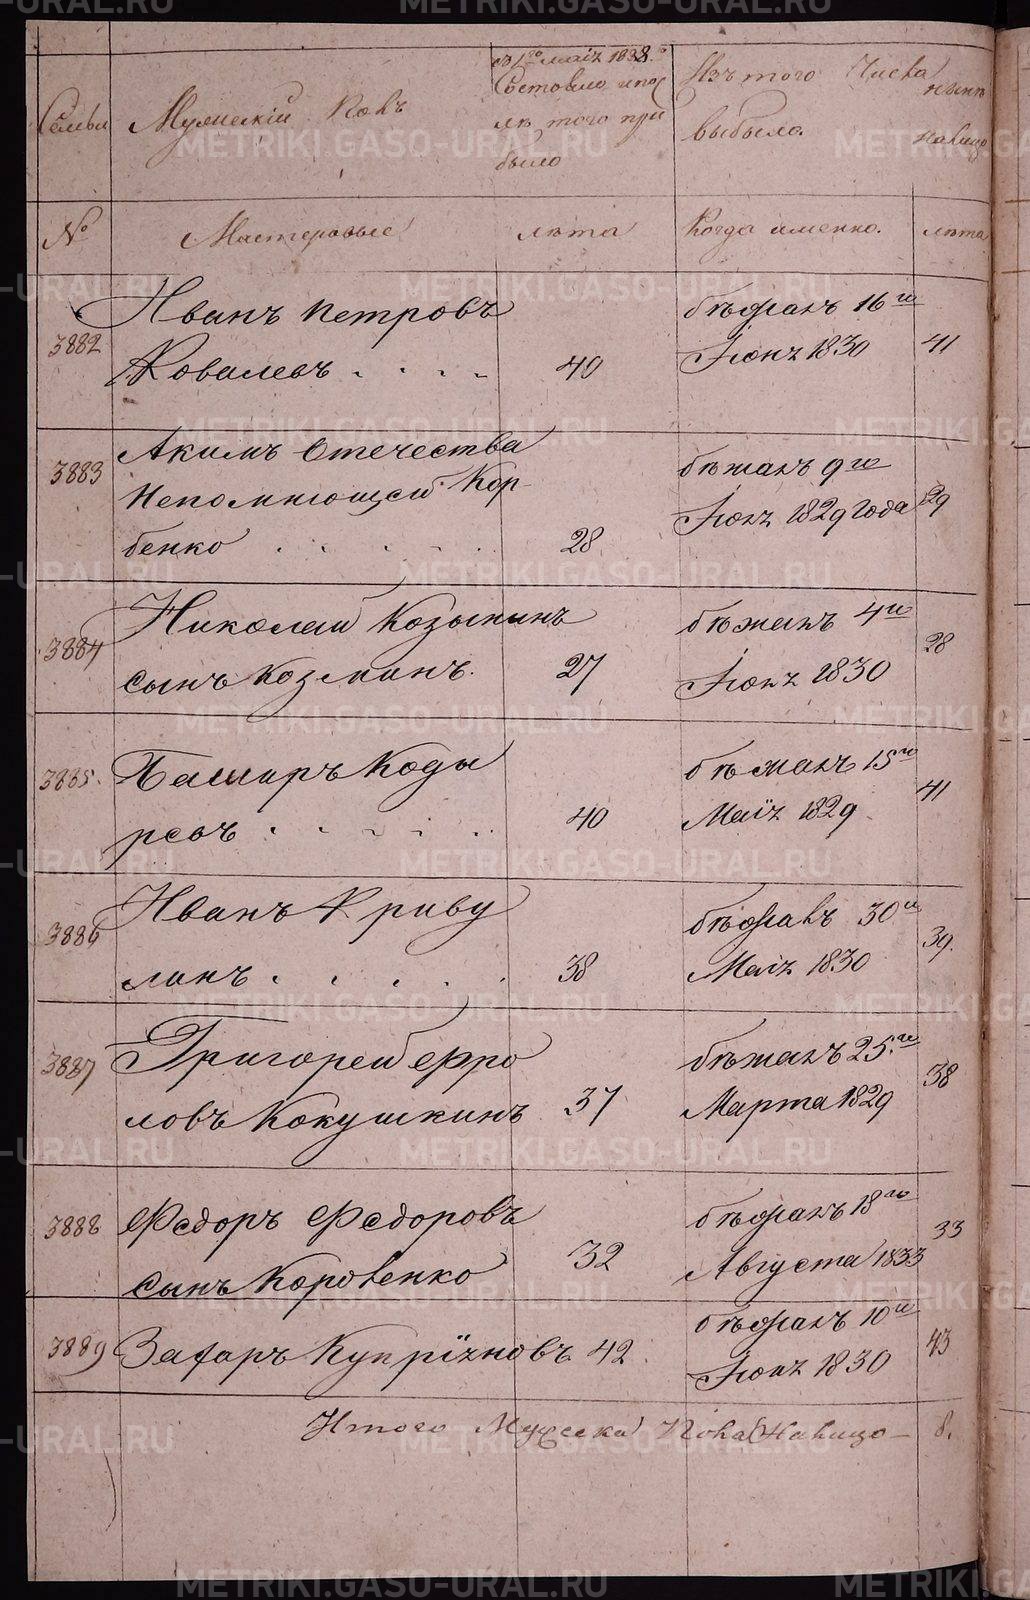 Семьи
Мужескій Полъ
съ 1го маія 1838го
Состояло и по
лѣ того при
было
Изъ того Числа
выбыло.
нынѣ
налицо
№
Мастеровые
лѣта
Когда именно.
лѣта
3882
Иванъ Петровъ
Ковалевъ
40
бѣжалъ 16го
Іюня 1830
41
3883
Акимъ Отечества
Непомнющей Кор
бенко
28
бѣжалъ 9го
Іюля 1829 года
29
3884
Николай Козьминъ
сынъ Козминъ.
27
бѣжалъ 4го
Іюня 1830
28
3885.
Баширъ Кады
ревъ
40
бѣжалъ 15го
Маія 1829
41
3886
Иванъ Криву
линъ
38
бѣжалъ 30го
Маія 1830
39.
3887
Григорей Фро
ловъ Кокушкинъ
37
бѣжалъ 25го
Марта 1829
38
3888
Федоръ Федоровъ
сынъ Коровенко
32
бѣжалъ 18го
Августа 1833
33
3889
Захаръ Купріяновъ 42
бѣжалъ 10го
Іюля 1830
43
Итого Мужеска Пола Налицо — 8.
METRIKI.GASO-URAL.RU